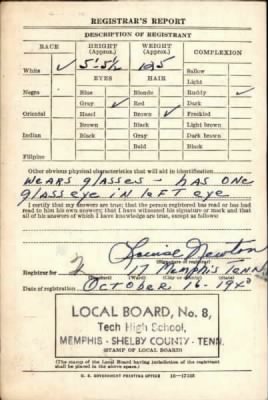 REGISTRAR'S REPORT
DESCRIPTION OF REGISTRANT
RACE HEIGHT (Approx.) WEIGHT (Approx.) COMPLEXION
White ✓ 5' 5½ 125 Sallow
EYES HAIR Light
Negro Blue Blonde Ruddy ✓
Gray ✓ Red ✓ Dark
Oriental Hazel Brown Freckled
Brown Black Light brown
Indian Black Gray Dark brown
Bald Black
Filipino
Other obvious physical characteristics that will aid in identification
WEARS glasses - HAS ONE
glass eye IN left eye
I certify that my answers are true; that the person registered has read or has had
read to him his own answers; that I have witnessed his signature or mark and that
all of his answers of which I have knowledge are true, except as follows:
Louise Newton
(Signature of registrar)
Registrar for 2 17 MEMPHIS TENN
(Precinct) (Ward) (City or county) (State)
Date of registration OCTOBER 16 - 1940
LOCAL BOARD, No. 8,
Tech High School,
MEMPHIS - SHELBY COUNTY - TENN.
(STAMP OF LOCAL BOARD)
(The stamp of the Local Board having jurisdiction of the registrant
shall be placed in the above space.)
U. S. GOVERNMENT PRINTING OFFICE 16-17105